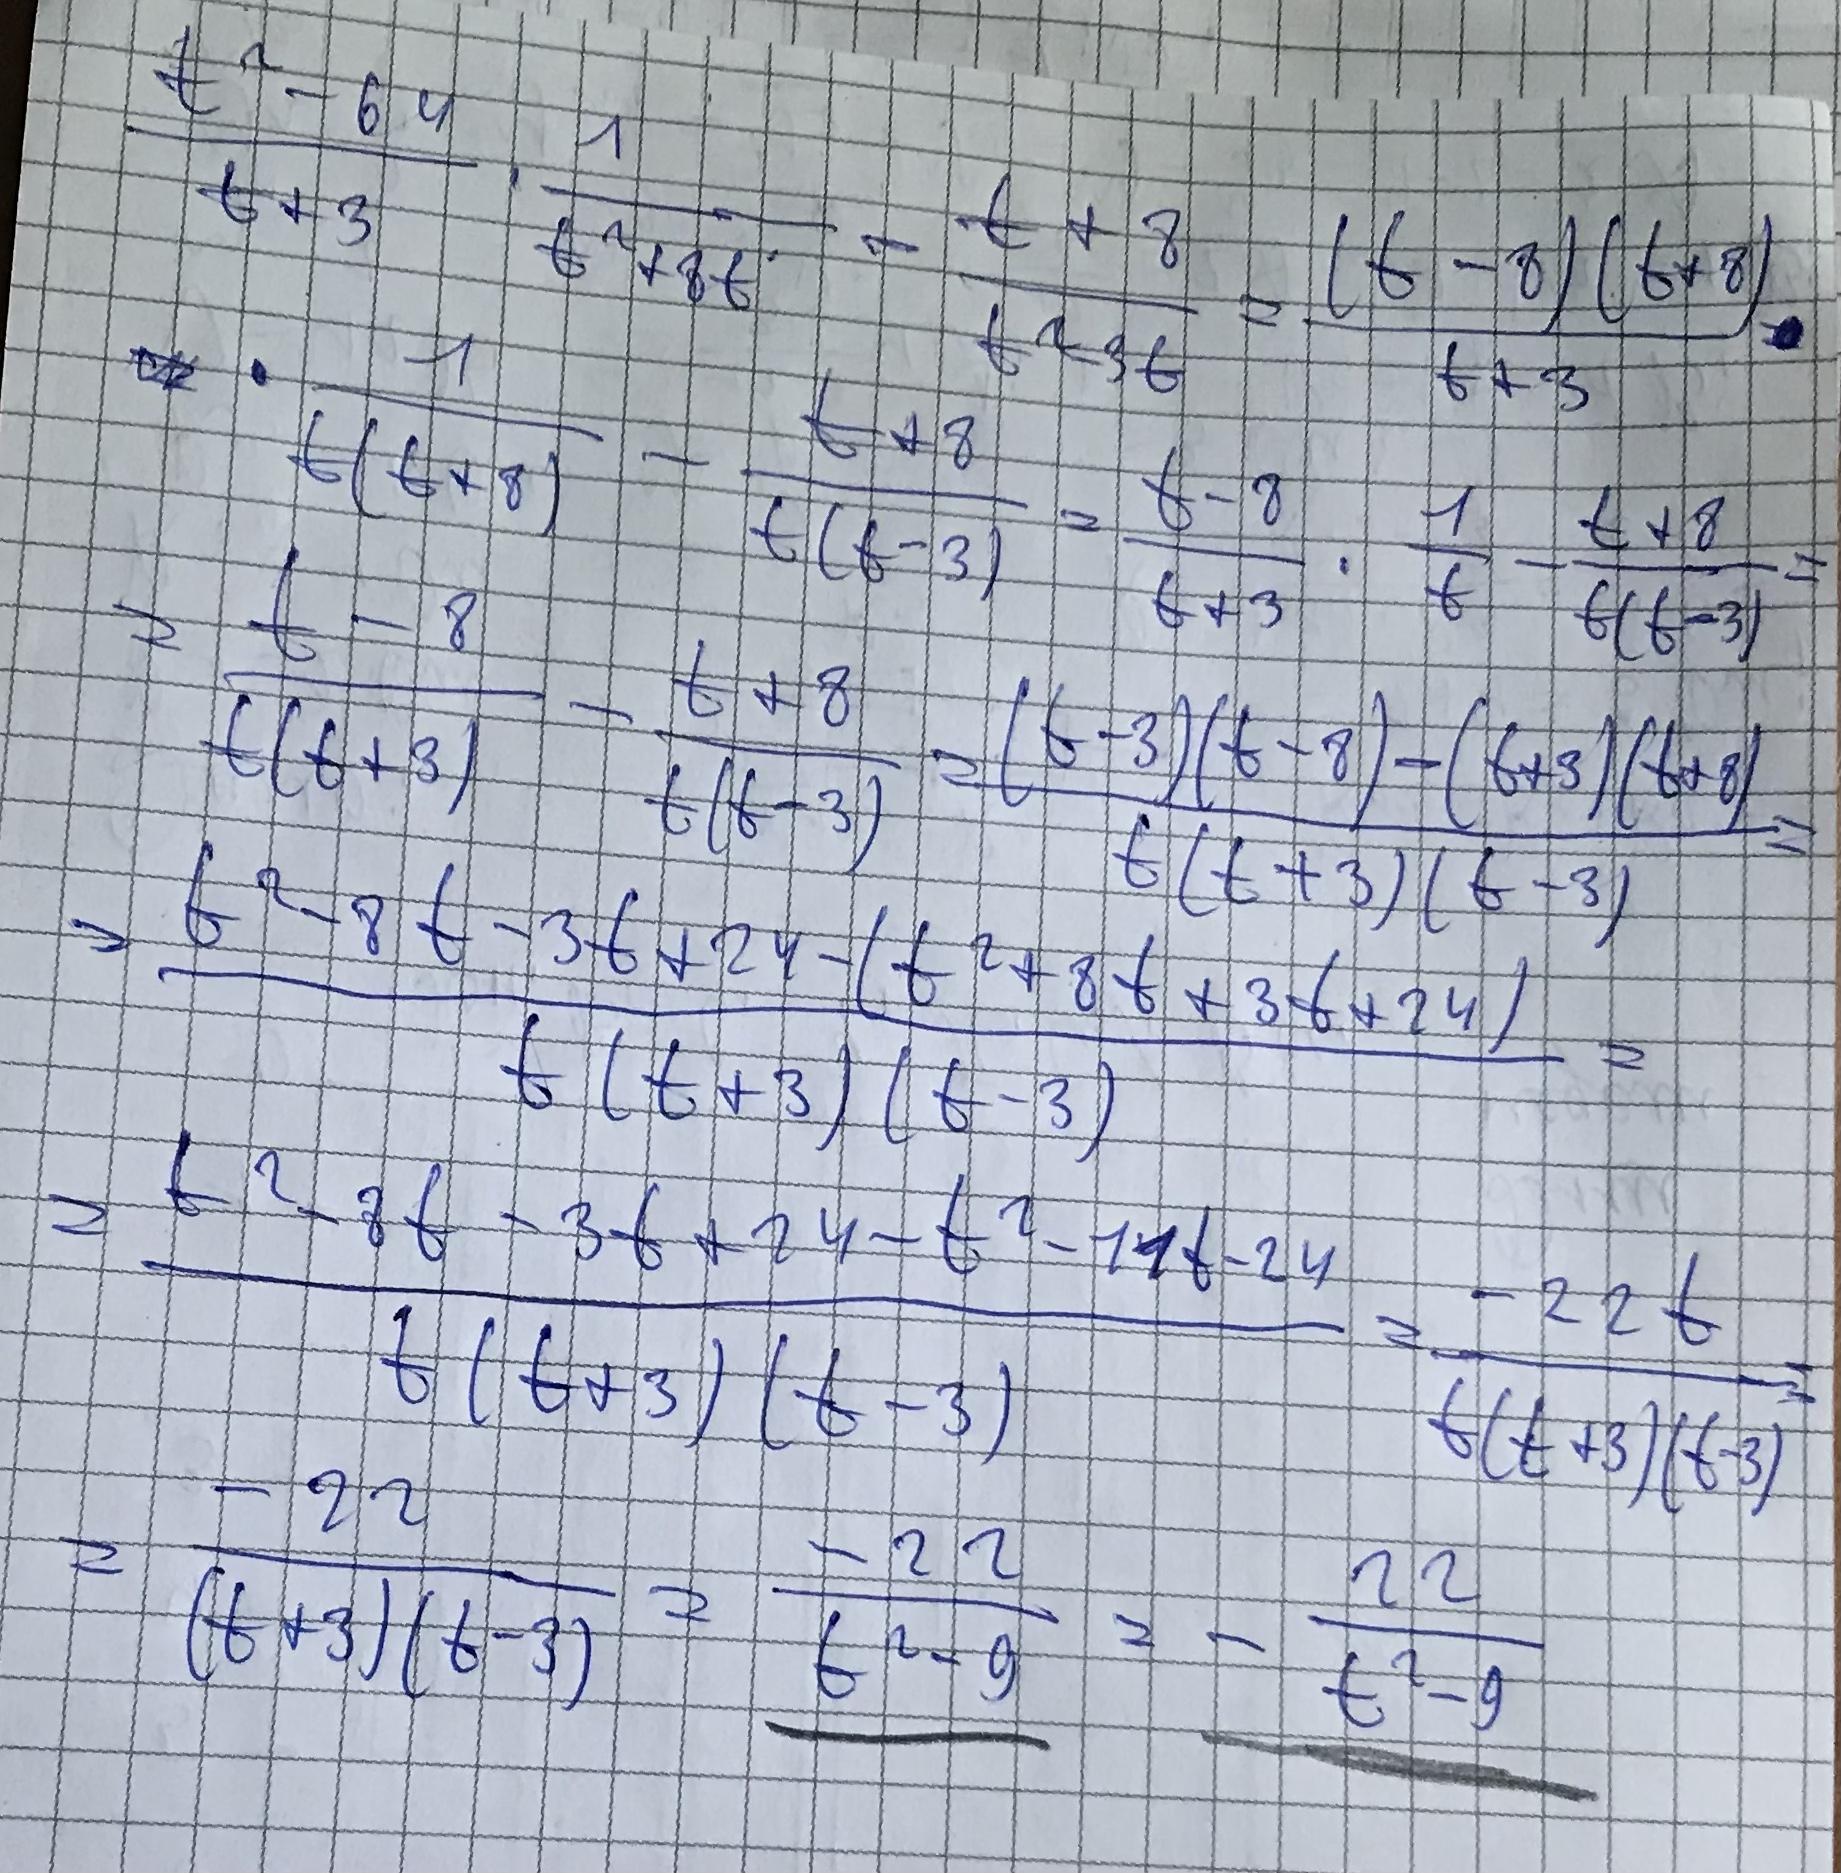 \frac{t^2-64}{t+3} \cdot \frac{1}{t^2+8t} - \frac{t+8}{t^2-3t} = \frac{(t-8)(t+8)}{t+3} \cdot
\cdot \frac{1}{t(t+8)} - \frac{t+8}{t(t-3)} = \frac{t-8}{t+3} \cdot \frac{1}{t} - \frac{t+8}{t(t-3)} =
= \frac{t-8}{t(t+3)} - \frac{t+8}{t(t-3)} = \frac{(t-3)(t-8)-(t+3)(t+8)}{t(t+3)(t-3)} =
= \frac{t^2-8t-3t+24-(t^2+8t+3t+24)}{t(t+3)(t-3)} =
= \frac{t^2-8t-3t+24-t^2-11t-24}{t(t+3)(t-3)} = \frac{-22t}{t(t+3)(t-3)} =
= \frac{-22}{(t+3)(t-3)} = \frac{-22}{t^2-9} = -\frac{22}{t^2-9}